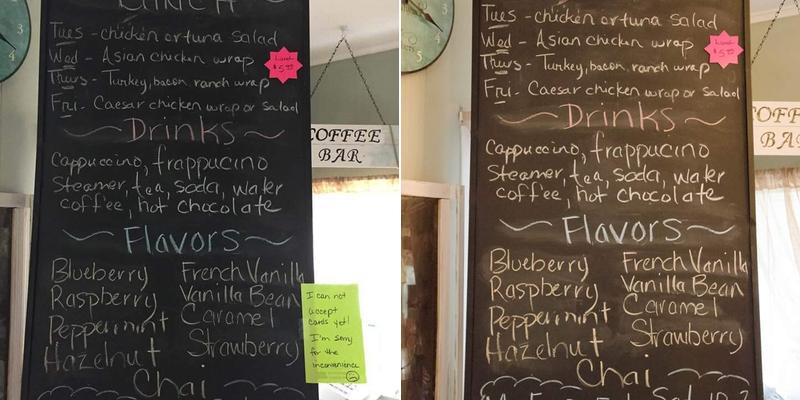 LUNCH
Tues - chicken or tuna salad
Wed - Asian chicken wrap
Thurs - Turkey, bacon, ranch wrap
Fri - Caesar chicken wrap or salad
Lunch
Drinks
Cappuccino, frappucino
Steamer, tea, soda, water
coffee, hot chocolate
Flavors
Blueberry French Vanilla
Raspberry Vanilla Bean
Peppermint Caramel
Hazelnut Strawberry
Chai
COFFEE
BAR
I can not
accept
cards yet!
I'm sorry
for the
inconvenience
3
4
Tues - chicken or tuna salad
Wed - Asian chicken wrap
Thurs - Turkey, bacon, ranch wrap
Fri - Caesar chicken wrap or salad
Lunch
Drinks
Cappuccino, frappucino
Steamer, tea, soda, water
coffee, hot chocolate
Flavors
Blueberry French Vanilla
Raspberry Vanilla Bean
Peppermint Caramel
Hazelnut Strawberry
Chai
COFFEE
BA
3
4